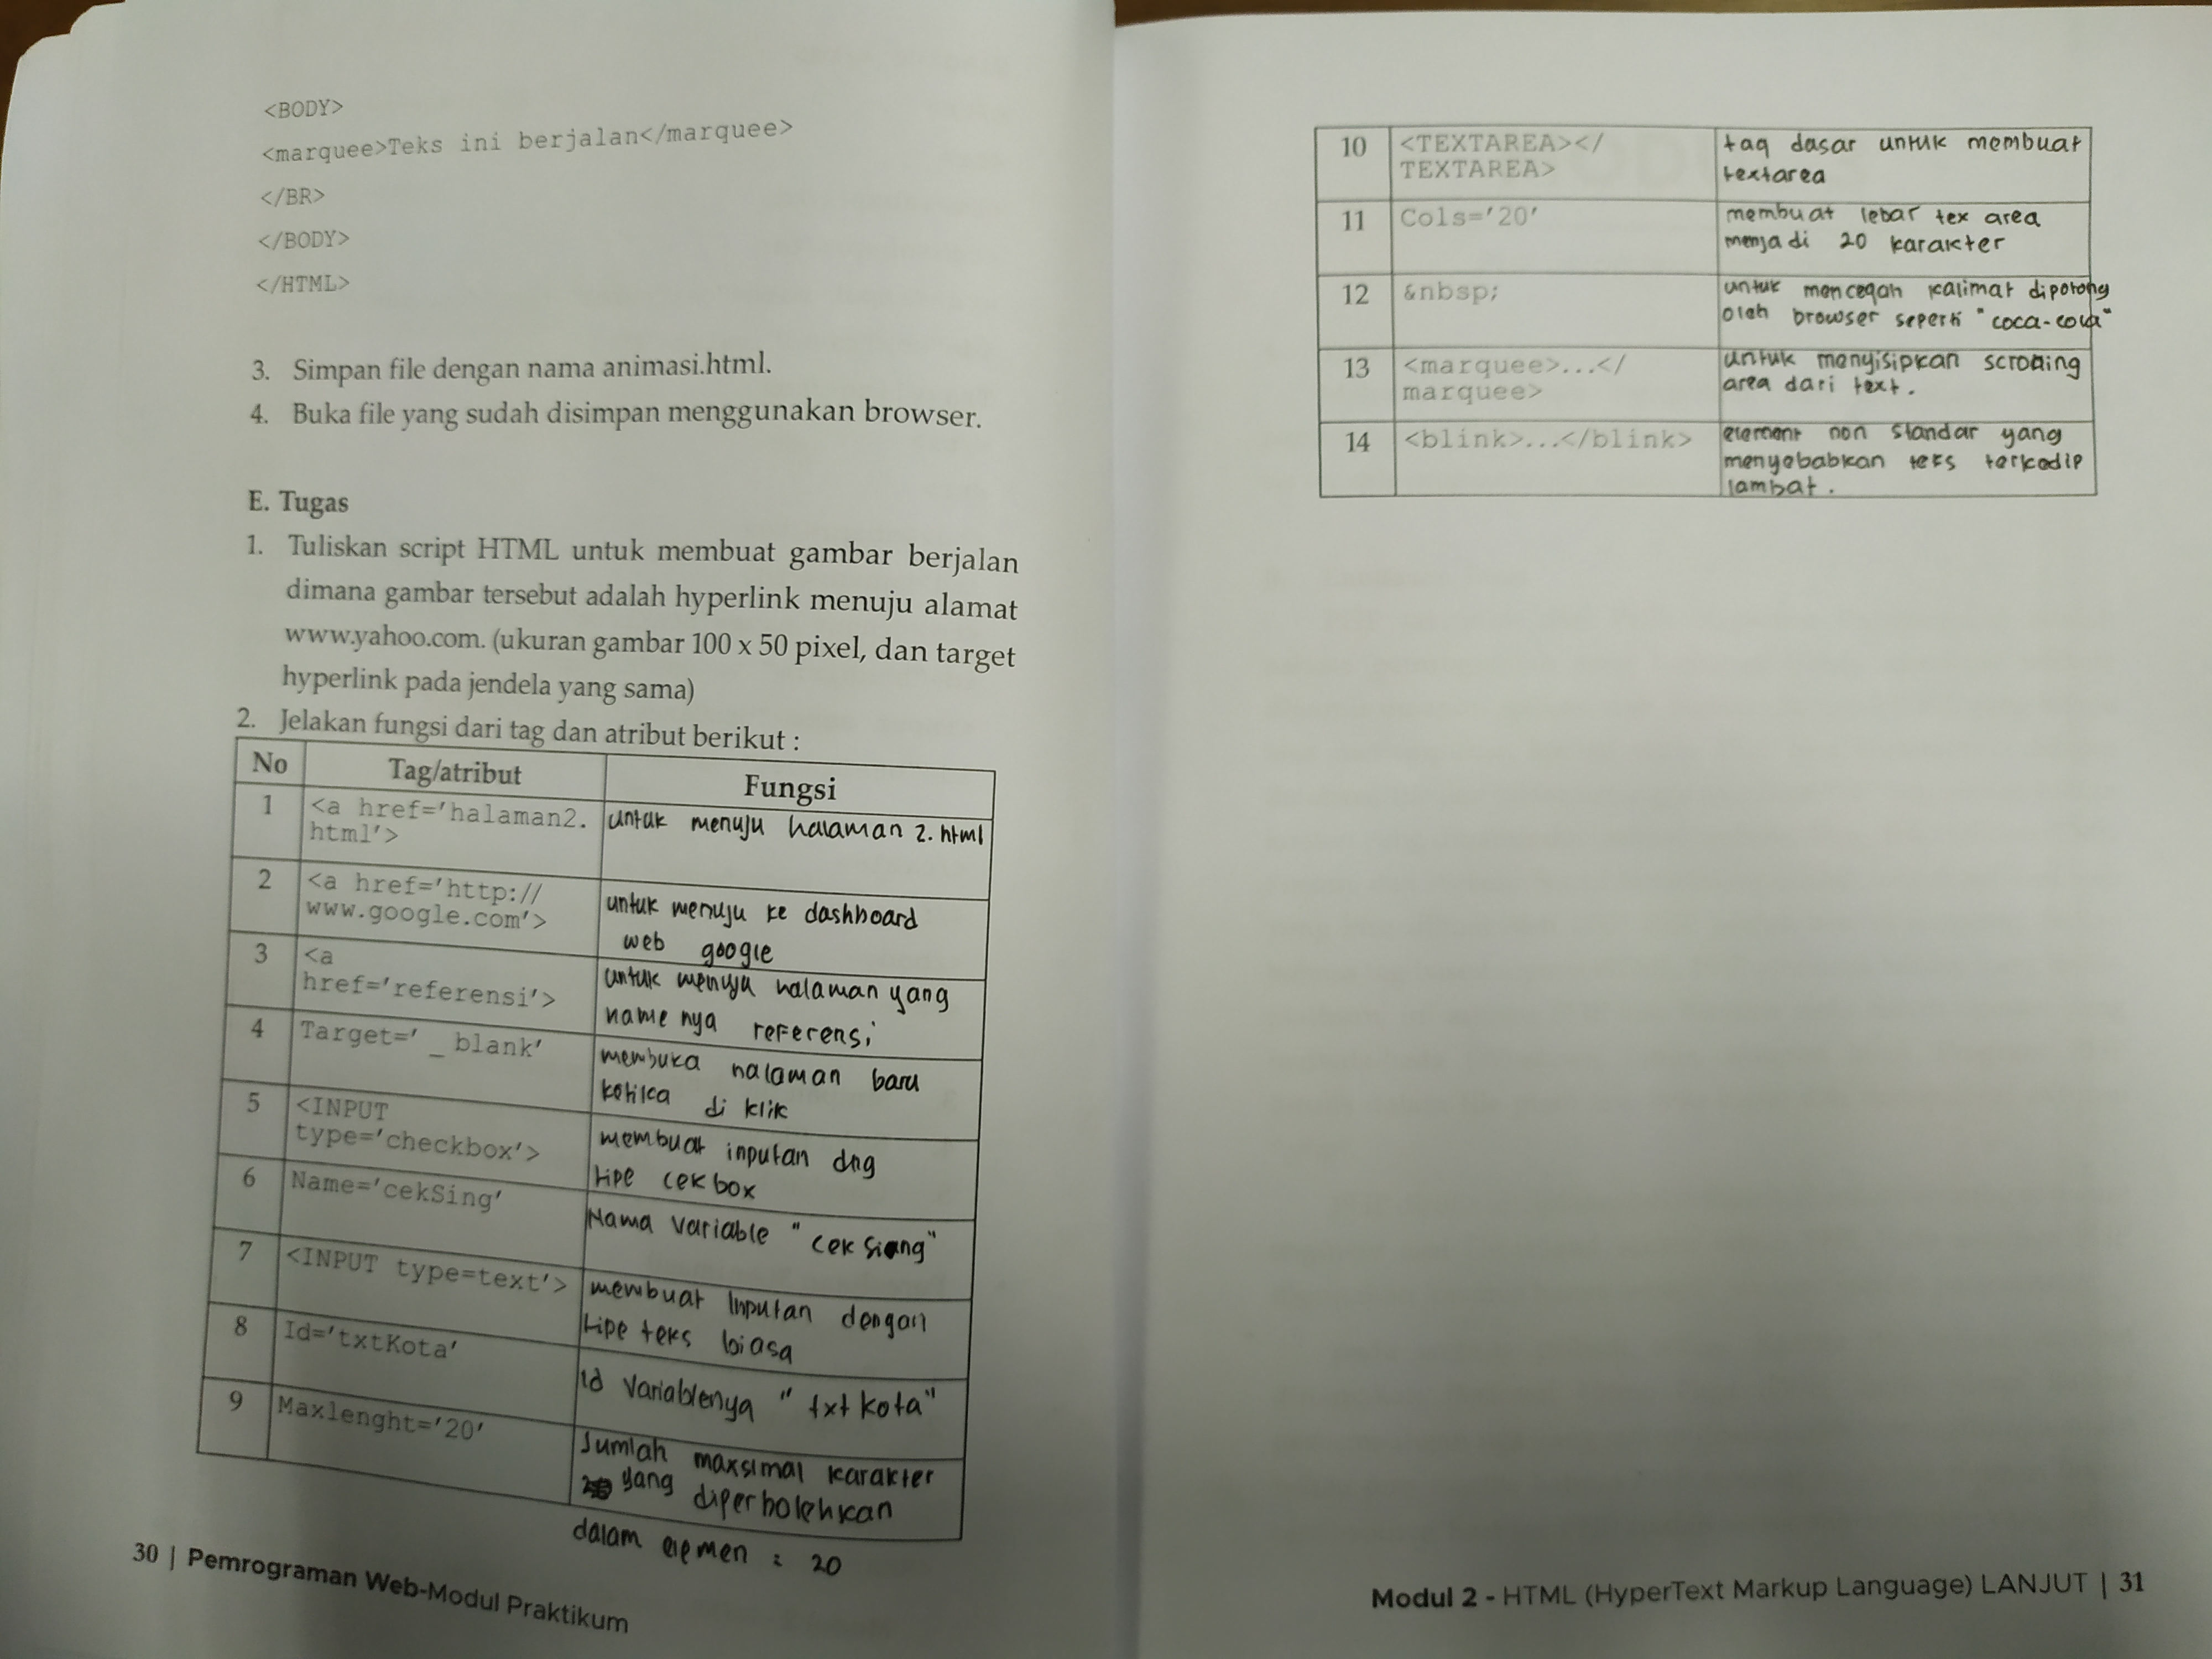 <BODY>
<marquee>Teks ini berjalan</marquee>
</BR>
</BODY>
</HTML>
3. Simpan file dengan nama animasi.html.
4. Buka file yang sudah disimpan menggunakan browser.
E. Tugas
1. Tuliskan script HTML untuk membuat gambar berjalan
dimana gambar tersebut adalah hyperlink menuju alamat
www.yahoo.com. (ukuran gambar 100 x 50 pixel, dan target
hyperlink pada jendela yang sama)
2. Jelakan fungsi dari tag dan atribut berikut :
No Tag/atribut Fungsi
1 <a href='halaman2. untuk menuju halaman 2. html
html'>
2 <a href='http:// untuk menuju ke dashboard
www.google.com'> web google
3 <a untuk menuju halaman yang
href='referensi'> name nya referensi
4 Target='_blank' membuka halaman baru
ketika di klik
5 <INPUT membuat inputan dng
type='checkbox'> tipe cekbox
6 Name='cekSing' Nama variable "cek siang"
7 <INPUT type=text'> membuat Inputan dengan
tipe teks biasa
8 Id='txtKota' Id variablenya "txt kota"
9 Maxlenght='20' Jumlah maxsimal karakter
yang diperbolehkan
dalam elemen : 20
30 | Pemrograman Web-Modul Praktikum
10 <TEXTAREA></ tag dasar untuk membuat
TEXTAREA> textarea
11 Cols='20' membuat lebar tex area
menjadi 20 karakter
12 &nbsp; untuk mencegah kalimat dipotong
oleh browser seperti "coca-cola"
13 <marquee>...</ untuk menyisipkan scrolling
marquee> area dari text.
14 <blink>...</blink> element non standar yang
menyebabkan teks terkedip
lambat.
Modul 2 - HTML (HyperText Markup Language) LANJUT | 31